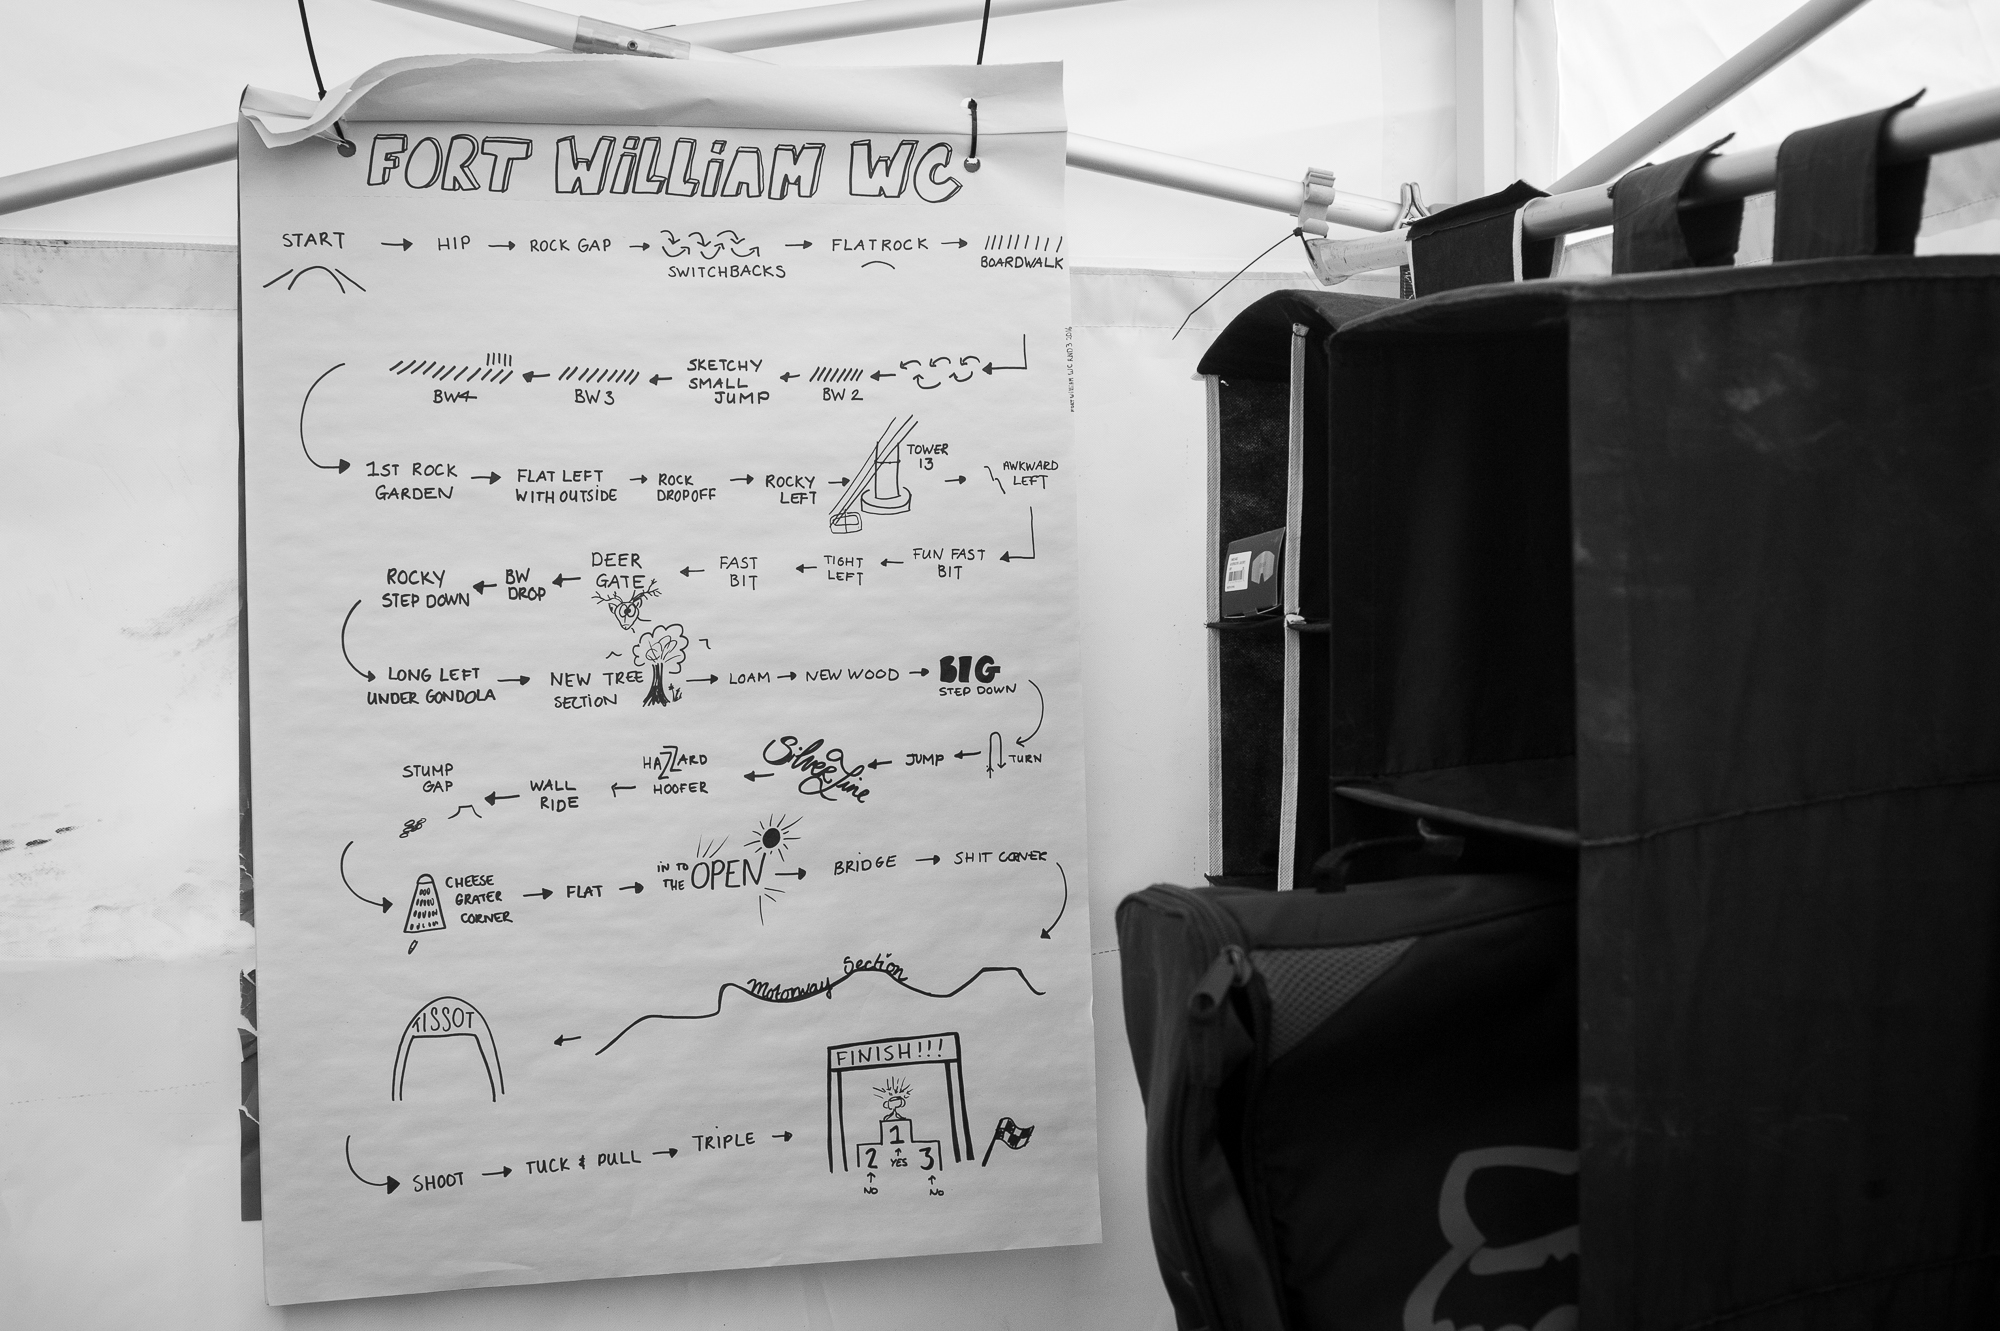 FORT WILLIAM WC
START → HIP → ROCK GAP → SWITCHBACKS → FLATROCK → BOARDWALK
FORT WILLIAM WC RND3 2016
BW4 ← BW3 ← SKETCHY SMALL JUMP ← BW2 ←
1ST ROCK GARDEN → FLAT LEFT WITH OUTSIDE → ROCK DROPOFF → ROCKY LEFT → TOWER 13 → AWKWARD LEFT
ROCKY STEP DOWN ← BW DROP ← DEER GATE ← FAST BIT ← TIGHT LEFT ← FUN FAST BIT ←
LONG LEFT UNDER GONDOLA → NEW TREE SECTION → LOAM → NEW WOOD → BIG STEP DOWN
STUMP GAP ← WALL RIDE ← HAZZARD HOOFER ← Silver Line ← JUMP ← TURN
CHEESE GRATER CORNER → FLAT → IN TO THE OPEN → BRIDGE → SHIT CORNER
Motorway Section
TISSOT ←
FINISH!!!
SHOOT → TUCK & PULL → TRIPLE →
1
2 ↑ YES 3
↑ NO ↑ NO